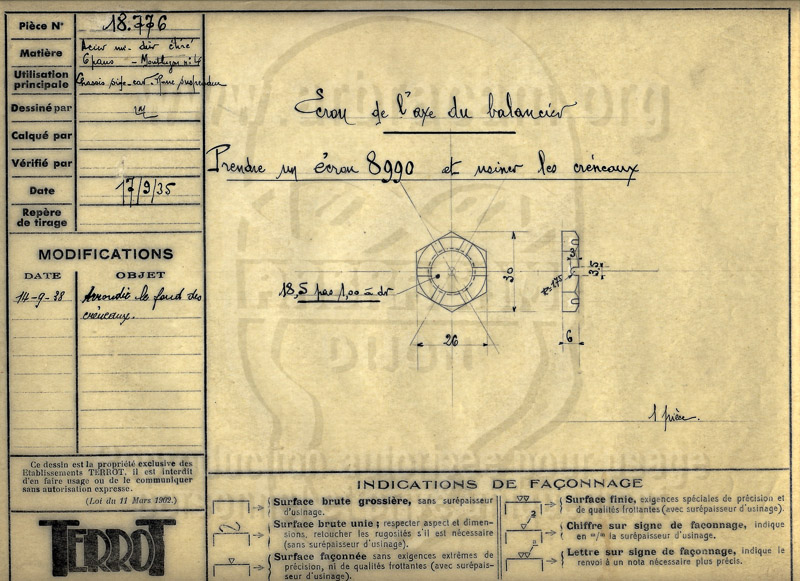 Pièce N° 18.776
Matière Acier mi-dur étiré
6 pans - Montluçon n° 4
Utilisation principale Chassis side-car - Roue suspendue
Dessiné par
Calqué par
Vérifié par
Date 17/9/35
Repère de tirage
MODIFICATIONS
DATE OBJET
14-9-38 Arrondir le fond des
créneaux.
Ce dessin est la propriété exclusive des
Etablissements TERROT, il est interdit
d'en faire usage ou de le communiquer
sans autorisation expresse.
(Loi du 11 Mars 1902.)
TERROT
Ecrou de l'axe du balancier
Prendre un écrou 8990 et usiner les créneaux
18,5 pas 1,00 à dr
30
26
3
3.5
r=1.75
6
1 pièce.
INDICATIONS DE FAÇONNAGE
Surface brute grossière, sans surépaisseur
d'usinage.
Surface brute unie ; respecter aspect et dimen-
sions, retoucher les rugosités s'il est nécessaire
(sans surépaisseur d'usinage).
Surface façonnée sans exigences extrêmes de
précision, ni de qualités frottantes (avec surépais-
seur d'usinage).
Surface finie, exigences spéciales de précision et
de qualités frottantes (avec surépaisseur d'usinage).
Chiffre sur signe de faconnage, indique
en m/m la surépaisseur d'usinage.
Lettre sur signe de façonnage, indique le
renvoi à un nota nécessaire plus précis.